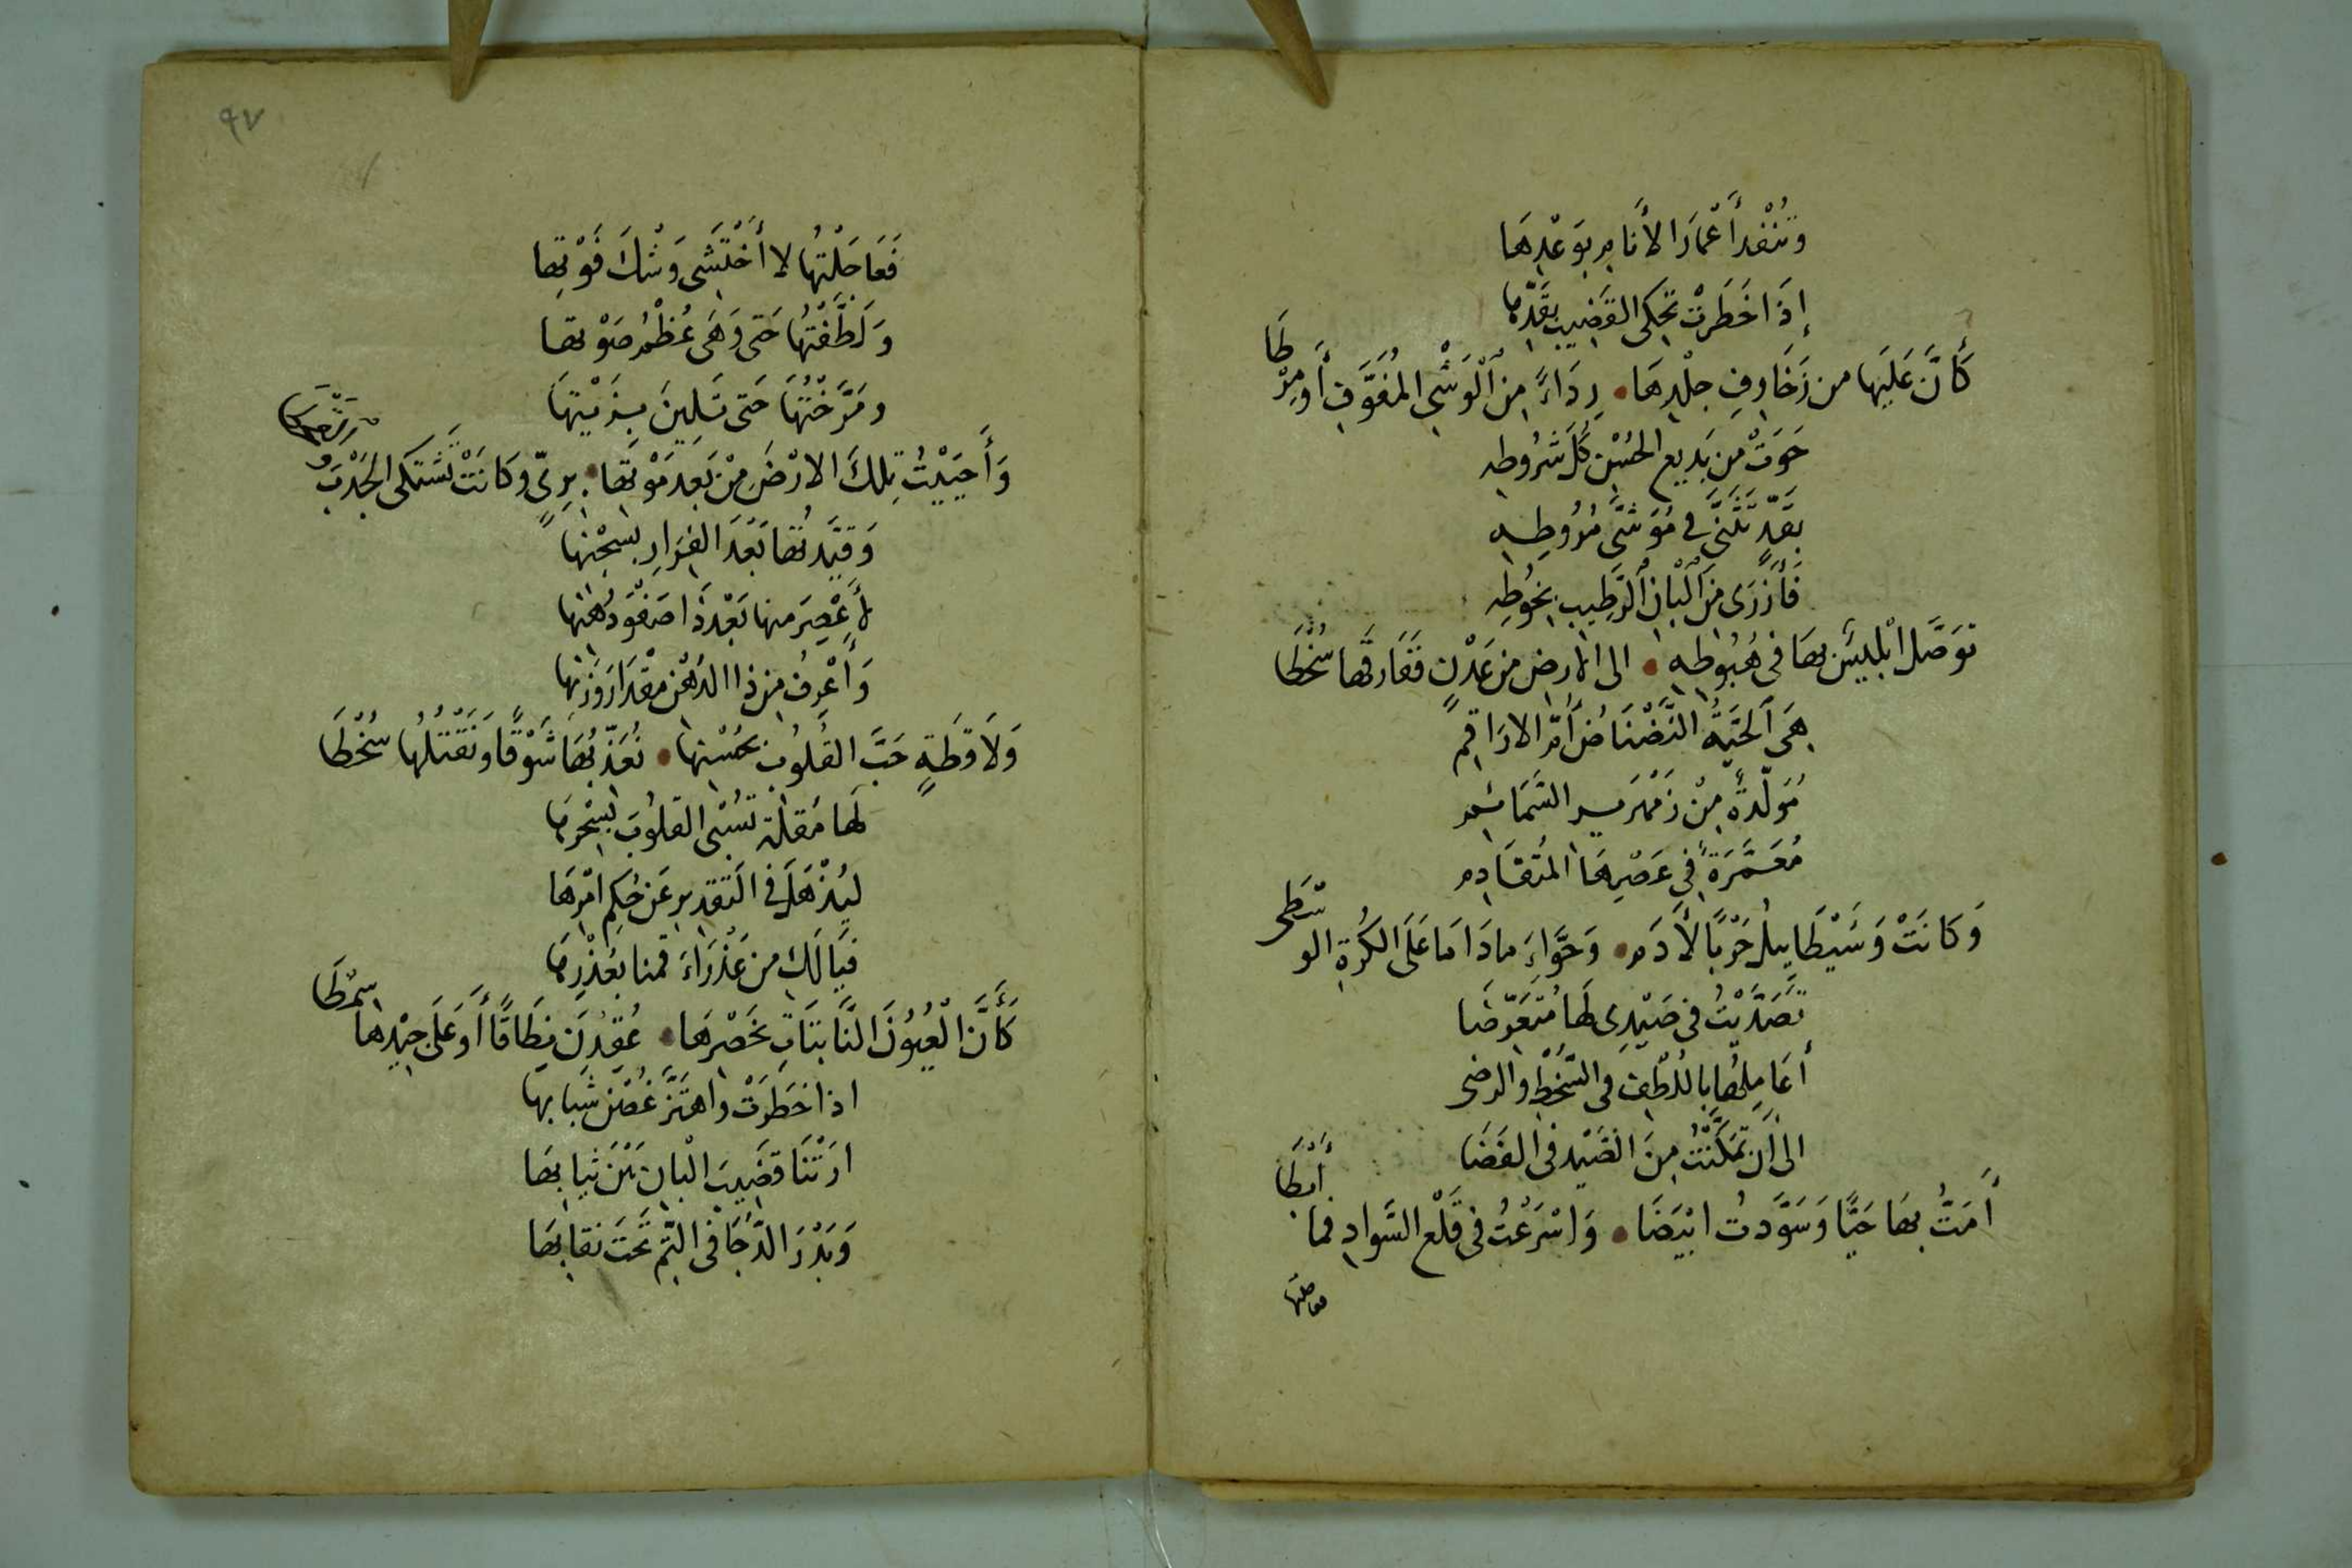 وَتُنْفِدُ أَعْمَارَ الأَنَامِ بِوَعْدِهَا
إِذَا خَطَرَتْ تَحْكِى القَضِيبَ بِقَدِّهَا
كَأَنَّ عَلَيْهَا من زَخَارِفِ جِلْدِهَا • رِدَاءً مِنَ الْوَشْىِ المُفَوَّفِ أَو مِرْطَا
حَوَتْ مِنْ بَدِيعِ الحُسْنِ كُلَّ شُرُوطِهِ
بِقَدٍّ تَثَنَّى فِى مُوَشَّى مُرُوطِهِ
فَأَزْرَى مِنَ الْبَانِ الرَّطِيبِ بِخُوطِهِ
تَوَصَّلَ ابْلِيسٌ بِهَا فِى هُبُوطِهِ • الى الارضِ مِن عَدْنٍ فَفَارَقَهَا سُخْطَا
هِىَ الْحَيَّةُ النَّضْنَاضُ أُمُّ الارَاقِمِ
مُوَلَّدةٌ مِنْ زَمْهَرِيرِ السَّمَائِمِ
مُعَمَّرَةٌ فِى عَصْرِهَا المُتَقَادِمِ
وَكَانَتْ وَشَيْطَايِيلُ حَرْبًا لأَدَمٍ • وَحَوَّاءَ مادَامَا عَلَى الكُرَةِ الوسْطَى
تَصَدَّيْتُ فى صَيْدِى لَهَا مُتَعَرِّضَا
أُعَامِلُهَا باللُطْفِ فى السُّخْطِ والرضى
الى أَن تَمَكَّنْتُ مِنَ الصَّيْدِ فى الفَضَا
أَمَتُّ بِهَا حَيًّا وَسَوَّدتُ ابْيَضَا • وَاسْرَعْتُ فى قَلْعِ السَّوادِ فما أَبْطَا
٩٧
لا أَخْتَشِى وَشْكَ فَوْتِهَا
وَلَطَّفْتُهَا حَتى وَهَى عُظْمُ صَوْتِهَا
ومَرَّخْتُهَا حَتى تَلِينَ بِزَيْتِهَا
وَأَحْيَيْتُ تِلكَ الارْضَ مِنْ بَعدِ مَوْتِهَا • بِرِىٍّ وكَانَتْ تَشْتَكى الجَدْبَ
وَقَيَّدتُهَا بَعْدَ الفِرَارِ بِسِجْنِهَا
لأَعْصِرَ منها بَعْدَ ذَا صَفْوَ دُهْنِهَا
وَأَعْرِفُ مِن ذا الدُهْنِ مِقْدَارَ وَزْنِهَا
وَلاَقِطَةٍ حَبَّ القُلُوبِ بِحُسْنِهَا • تُعَذِّبُهَا شَوْقًا وَتَقْتُلُهَا سُخْطَا
لَهَا مُقلَةٌ تَسْبِى القلُوبَ بِسِحْرِهَا
لِيُذْهَلَ فى التقدِيرِ عَن حُكمِ امْرِهَا
فَيَا لَكِ من عَذْرَاءَ قمنا بِعُذْرِهَا
كَأَنَّ الْعُيُونَ النَّابِتَاتِ بِخَصْرِهَا • عُقِدْنَ نِطَاقًا أَوْ عَلَى جِيْدِهَا سِمْطَا
اذا خَطَرَتْ واهتَزَّ غُصْنُ شَبَابِهَا
ارَتْنَا قَضِيبَ الْبَانِ بَيْنَ ثِيَابِهَا
وَبَدْرَ الدُّجَا فى التِّمِّ تَحْتَ نقابِهَا